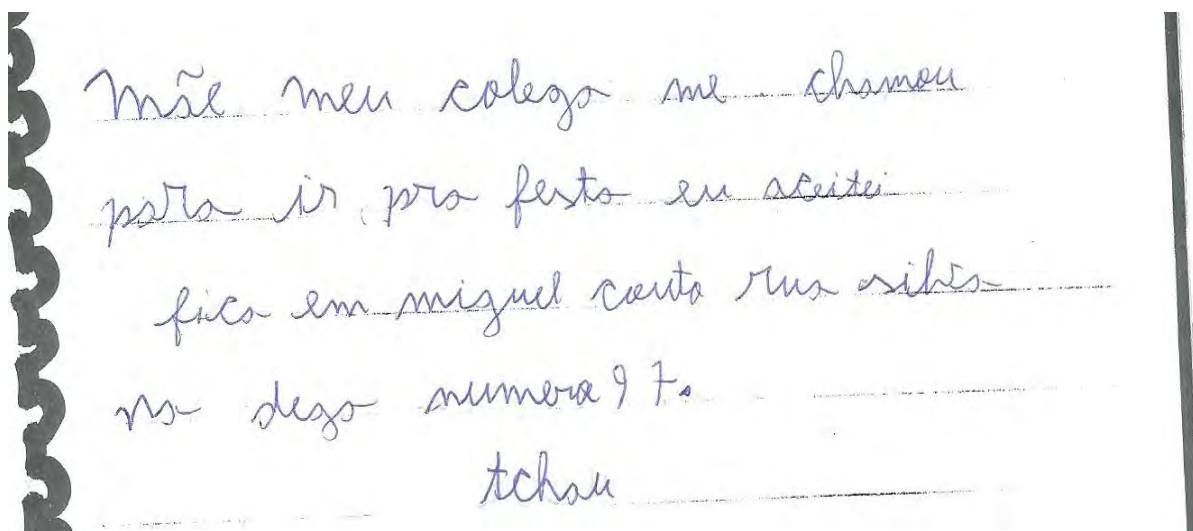 Mãe meu colega me chamou
para ir pra festa eu aceitei
fica em miguel couto rua
na numera 97.
tchau